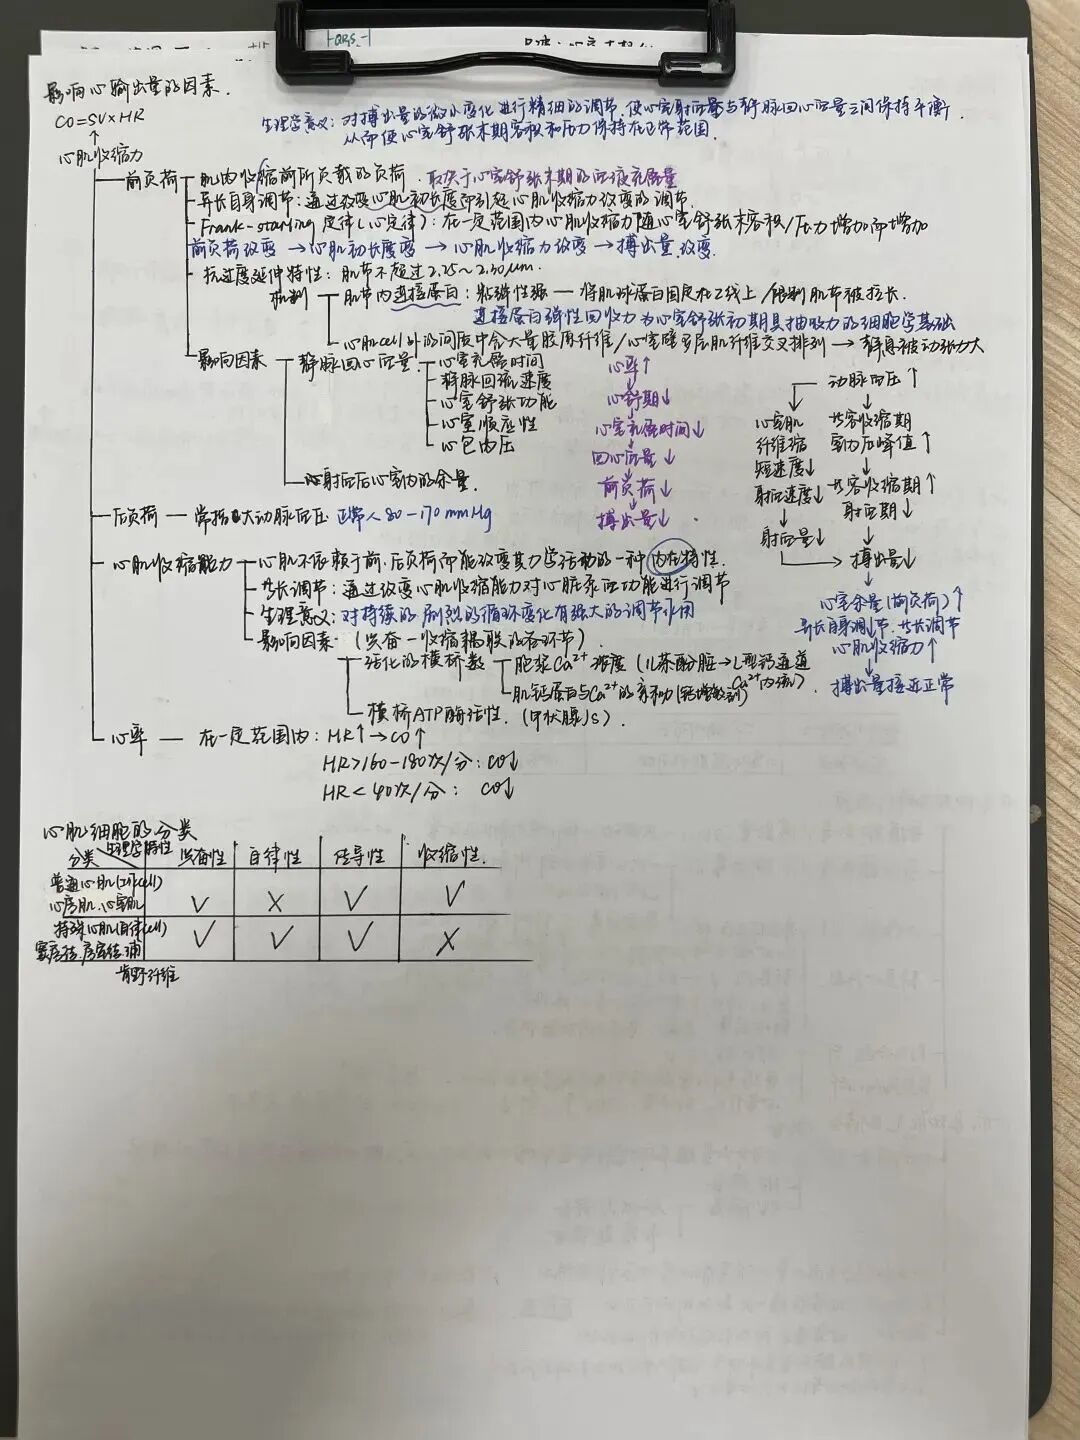 QRS
影响心输出量的因素.
CO=SV×HR
生理学意义: 对搏出量的微小变化进行精细的调节, 使心室射血量与静脉回心血量之间保持平衡.
从而使心室舒张末期容积和压力保持在正常范围.
心肌收缩力
前负荷 — 肌肉收缩前所负载的负荷. 取决于心室舒张末期的血液充盈量
异长自身调节: 通过改变心肌初长度而引起心肌收缩力改变的调节.
Frank-starling定律(心定律): 在一定范围内心肌收缩力随心室舒张末容积/压力增加而增加
前负荷改变 → 心肌初长度变 → 心肌收缩力改变 → 搏出量改变.
抗过度延伸特性: 肌节不超过2.25~2.30μm.
机制 — 肌节内连接蛋白: 黏弹性强 — 将肌球蛋白固定在Z线上/限制肌节被拉长.
连接蛋白弹性回收力为心室舒张初期具抽吸力的细胞学基础
心肌cell外的间质中含大量胶原纤维/心室壁多层肌纤维交叉排列 → 静息被动张力大
影响因素 — 静脉回心血量 — 心室充盈时间
静脉回流速度
心室舒张功能
心室顺应性
心包内压
心射血后心室内的余量.
心率↑
心舒期↓
心室充盈时间↓
回心血量↓
前负荷↓
搏出量↓
动脉血压↑
心室肌纤维缩短速度↓
射血速度↓
射血量↓
等容收缩期室内压峰值↑
等容收缩期↑
射血期↓
搏出量↓
心室余量(前负荷)↑
异长自身调节. 等长调节
心肌收缩力↑
搏出量接近正常
后负荷 — 常指大动脉血压 正常人80-170mmHg
心肌收缩能力 — 心肌不依赖于前.后负荷而能改变其力学活动的一种内在特性.
等长调节: 通过改变心肌收缩能力对心脏泵血功能进行调节
生理意义: 对持续的剧烈的循环变化有强大的调节作用
影响因素 (兴奋-收缩耦联的各环节)
活化的横桥数 — 胞浆Ca²⁺浓度 (儿茶酚胺→L型钙通道 Ca²⁺内流)
肌钙蛋白与Ca²⁺的亲和力(钙增敏剂)
横桥ATP酶活性. (甲状腺素).
心率 — 在一定范围内: HR↑→CO↑
HR>160-180次/分: CO↓
HR<40次/分: CO↓
心肌细胞的分类
分类 生理学特性 兴奋性 自律性 传导性 收缩性.
普通心肌(工作cell) 心房肌.心室肌 √ × √ √
特殊心肌(自律cell) 窦房结.房室结.浦肯野纤维 √ √ √ ×